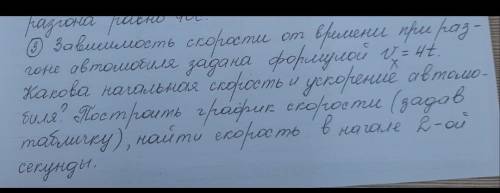 разгона равно 40с.
③ Зависимость скорости от времени при раз-
гоне автомобиля задана формулой vₓ = 4t.
Какова начальная скорость и ускорение автомо-
биля? Построить график скорости (задав
табличку), найти скорость в начале 2-ой
секунды.